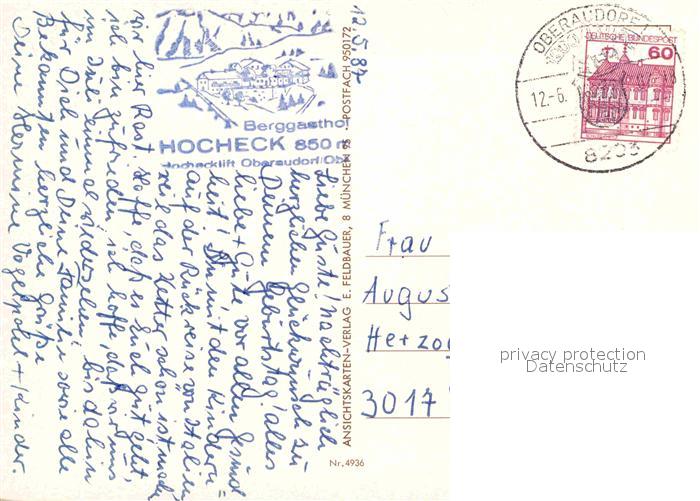 12.6.87
Liebe Guste! Nachträglich
herzlichen Glückwunsch zu
Deinem Geburtstag! Alles
Liebe + Gute vor allem Gesund=
heit! Bin mit den Kindern
auf der Rückreise von Italien
weil das Wetter schön ist, machen
wir hier Rast. Hoffe, daß es Euch gut geht,
ich bin zufrieden. Ich hoffe, daß wir uns
im Juli einmal wiedersehen, bis dahin
für Dich und Deine Familie sowie alle
Bekannten herzliche Grüße
Deine Hermine Vogel + Kinder.
Berggasthof
HOCHECK 850 m
Hochecklift Oberaudorf/Obb
ANSICHTSKARTEN-VERLAG E. FELDBAUER, 8 MÜNCHEN 95 · POSTFACH 950172
Nr. 4936
OBERAUDORF
12.-6.
8203
DEUTSCHE BUNDESPOST
60
Frau
Augus
Herzog
3017
privacy protection
Datenschutz